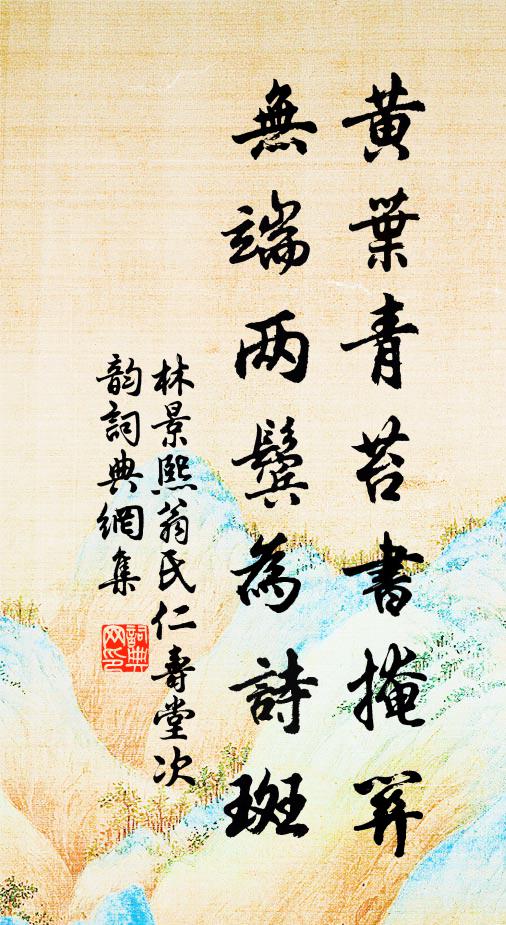 黄葉青苔書掩關
無端两鬓為詩斑
林景熙翁氏仁壽堂次
韵詞典網集
詞典网印